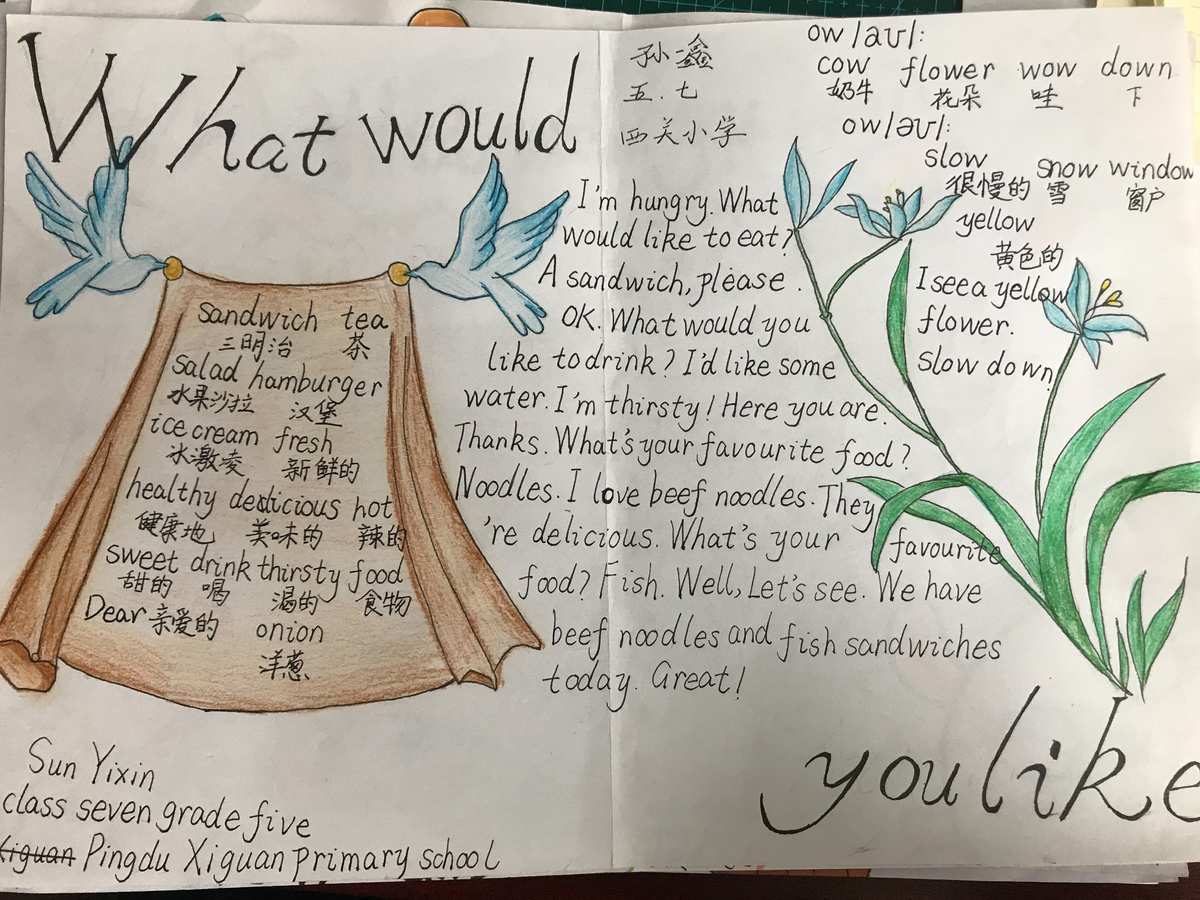 What would
孙一鑫
五.七
西关小学
ow/aʊ/:
cow flower wow down
奶牛 花朵 哇 下
ow/əʊ/:
slow snow window
很慢的 雪 窗户
yellow
黄色的
I see a yellow
flower.
slow down
sandwich tea
三明治 茶
salad hamburger
水果沙拉 汉堡
ice cream fresh
冰激凌 新鲜的
healthy delicious hot
健康地 美味的 辣的
sweet drink thirsty food
甜的 喝 渴的 食物
Dear 亲爱的 onion
洋葱
I'm hungry. What
would like to eat?
A sandwich, please.
OK. What would you
like to drink? I'd like some
water. I'm thirsty! Here you are.
Thanks. What's your favourite food?
Noodles. I love beef noodles. They
're delicious. What's your favourite
food? Fish. Well, Let's see. We have
beef noodles and fish sandwiches
today. Great!
Sun Yixin
class seven grade five
Xiguan Pingdu Xiguan primary school
you like